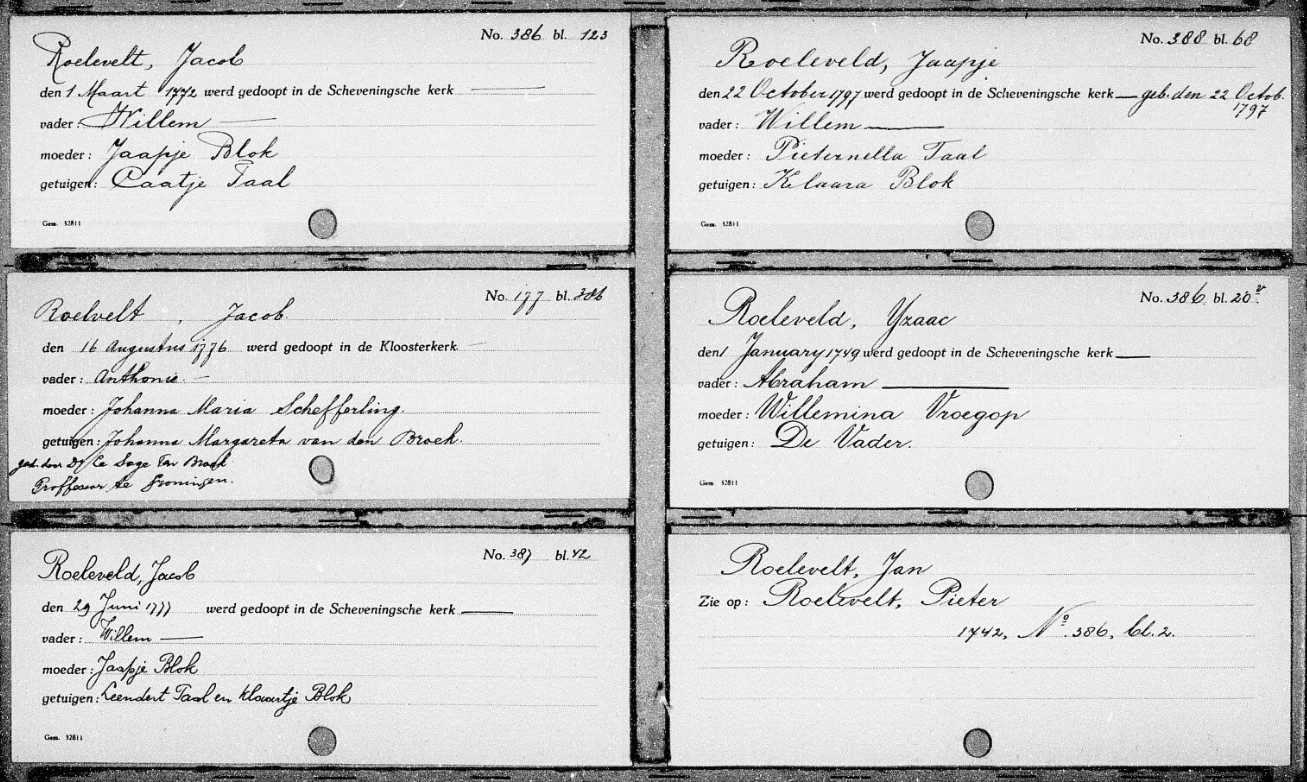 No. 386 bl. 123
Roelevelt, Jacob
den 1 Maart 1772 werd gedoopt in de Scheveningsche kerk
vader: Willem
moeder: Jaapje Blok
getuigen: Caatje Taal
Gem. 32811
No. 177 bl. 386
Roelvelt, Jacob.
den 16 Augustus 1776 werd gedoopt in de Kloosterkerk.
vader: Anthonie.
moeder: Johanna Maria Schefferling.
getuigen: Johanna Margareta van den Broek.
ged. door Ds Ce Sage Ten Broek
Proffesser te Groningen.
No. 387 bl. 42
Roeleveld, Jacob
den 29 Juni 1777 werd gedoopt in de Scheveningsche kerk
vader: Willem
moeder: Jaapje Blok
getuigen: Leendert Taal en Klaartje Blok
Gem. 32811
No. 388 bl. 68
Roeleveld, Jaapje
den 22 October 1797 werd gedoopt in de Scheveningsche kerk — geb. den 22 Octob.
1797
vader: Willem
moeder: Pieternella Taal
getuigen: Klaara Blok
Gem. 32811
No. 386 bl. 20v.
Roeleveld, Yzaac
den 1 January 1749 werd gedoopt in de Scheveningsche kerk
vader: Abraham
moeder: Willemina Vroegop
getuigen: De Vader.
Gem. 32811
Roelevelt, Jan
Zie op: Roelevelt, Pieter
1742, No. 386, bl. 2.